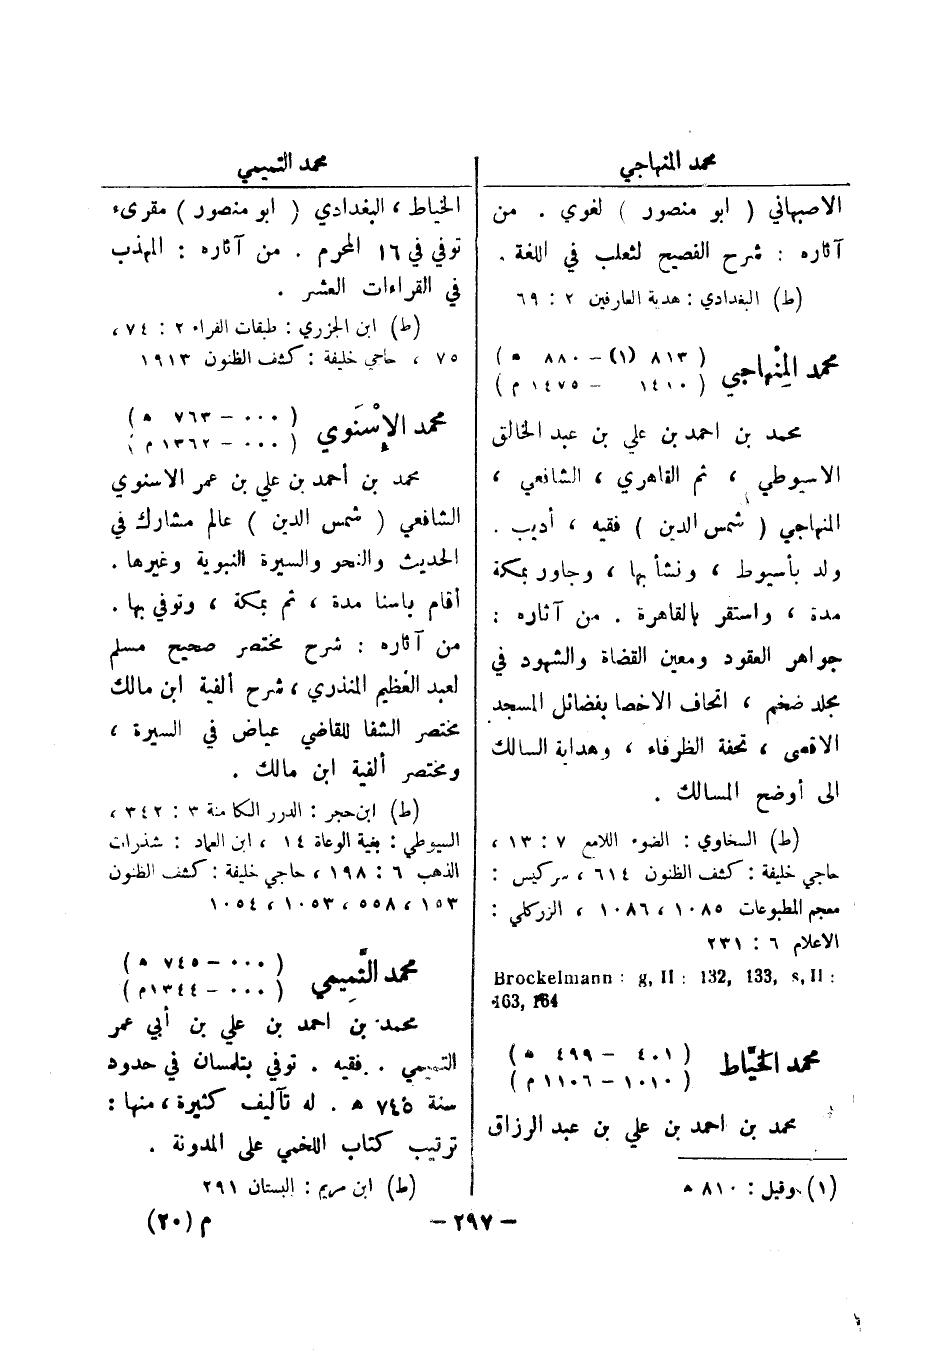 محمد المنهاجي
الاصبهاني ( ابو منصور ) لغوي . من
آثاره : شرح الفصيح لثعلب في اللغة .
(ط) البغدادي : هدية العارفين ٢ : ٦٩
محمد المِنْهاجي ( ٨١٣ (١) – ٨٨٠ ه )
( ١٤١٠ – ١٤٧٥ م )
محمد بن احمد بن علي بن عبد الخالق
الاسيوطي ، ثم القاهري ، الشافعي ،
المنهاجي ( شمس الدين ) فقيه ، أديب .
ولد بأسيوط ، ونشأ بها ، وجاور بمكة
مدة ، واستقر بالقاهرة . من آثاره :
جواهر العقود ومعين القضاة والشهود في
مجلد ضخم ، اتحاف الاخصا بفضائل المسجد
الاقصى ، تحفة الظرفاء ، وهداية السالك
الى أوضح المسالك .
(ط) السخاوي : الضوء اللامع ٧ : ١٣ ،
حاجي خليفة : كشف الظنون ٦١٤ ، سركيس :
معجم المطبوعات ١٠٨٥ ، ١٠٨٦ ، الزركلي :
الاعلام ٦ : ٢٣١
Brockelmann : g, II : 132, 133, s, II :
163, 164
محمد الخيَّاط ( ٤٠١ – ٤٩٩ ه )
( ١٠١٠ – ١١٠٦ م )
محمد بن احمد بن علي بن عبد الرزاق
(١) وقيل : ٨١٠ ه
محمد التميمي
الخياط ، البغدادي ( ابو منصور ) مقرىء
توفي في ١٦ المحرم . من آثاره : المهذب
في القراءات العشر .
(ط) ابن الجزري : طبقات القراء ٢ : ٧٤ ،
٧٥ ، حاجي خليفة : كشف الظنون ١٩١٣
محمد الإِسْنَوي ( ٠٠٠ – ٧٦٣ ه )
( ٠٠٠ – ١٣٦٢ م )
محمد بن أحمد بن علي بن عمر الاسنوي
الشافعي ( شمس الدين ) عالم مشارك في
الحديث والنحو والسيرة النبوية وغيرها .
أقام باسنا مدة ، ثم بمكة ، وتوفي بها .
من آثاره : شرح مختصر صحيح مسلم
لعبد العظيم المنذري ، شرح ألفية ابن مالك
مختصر الشفا للقاضي عياض في السيرة ،
ومختصر ألفية ابن مالك .
(ط) ابن حجر : الدرر الكامنة ٣ : ٣٤٢ ،
السيوطي : بغية الوعاة ١٤ ، ابن العماد : شذرات
الذهب ٦ : ١٩٨ ، حاجي خليفة : كشف الظنون
١٥٣ ، ٥٥٨ ، ١٠٥٣ ، ١٠٥٤
محمد التَّمِيمي ( ٠٠٠ – ٧٤٥ ه )
( ٠٠٠ – ١٣٤٤ م )
محمد بن احمد بن علي بن أبي عمر
التميمي . فقيه . توفي بتلمسان في حدود
سنة ٧٤٥ ه . له تآليف كثيرة ، منها :
ترتيب كتاب اللخمي على المدونة .
(ط) ابن مريم : البستان ٢٩١
– ٢٩٧ –
م (٢٠)